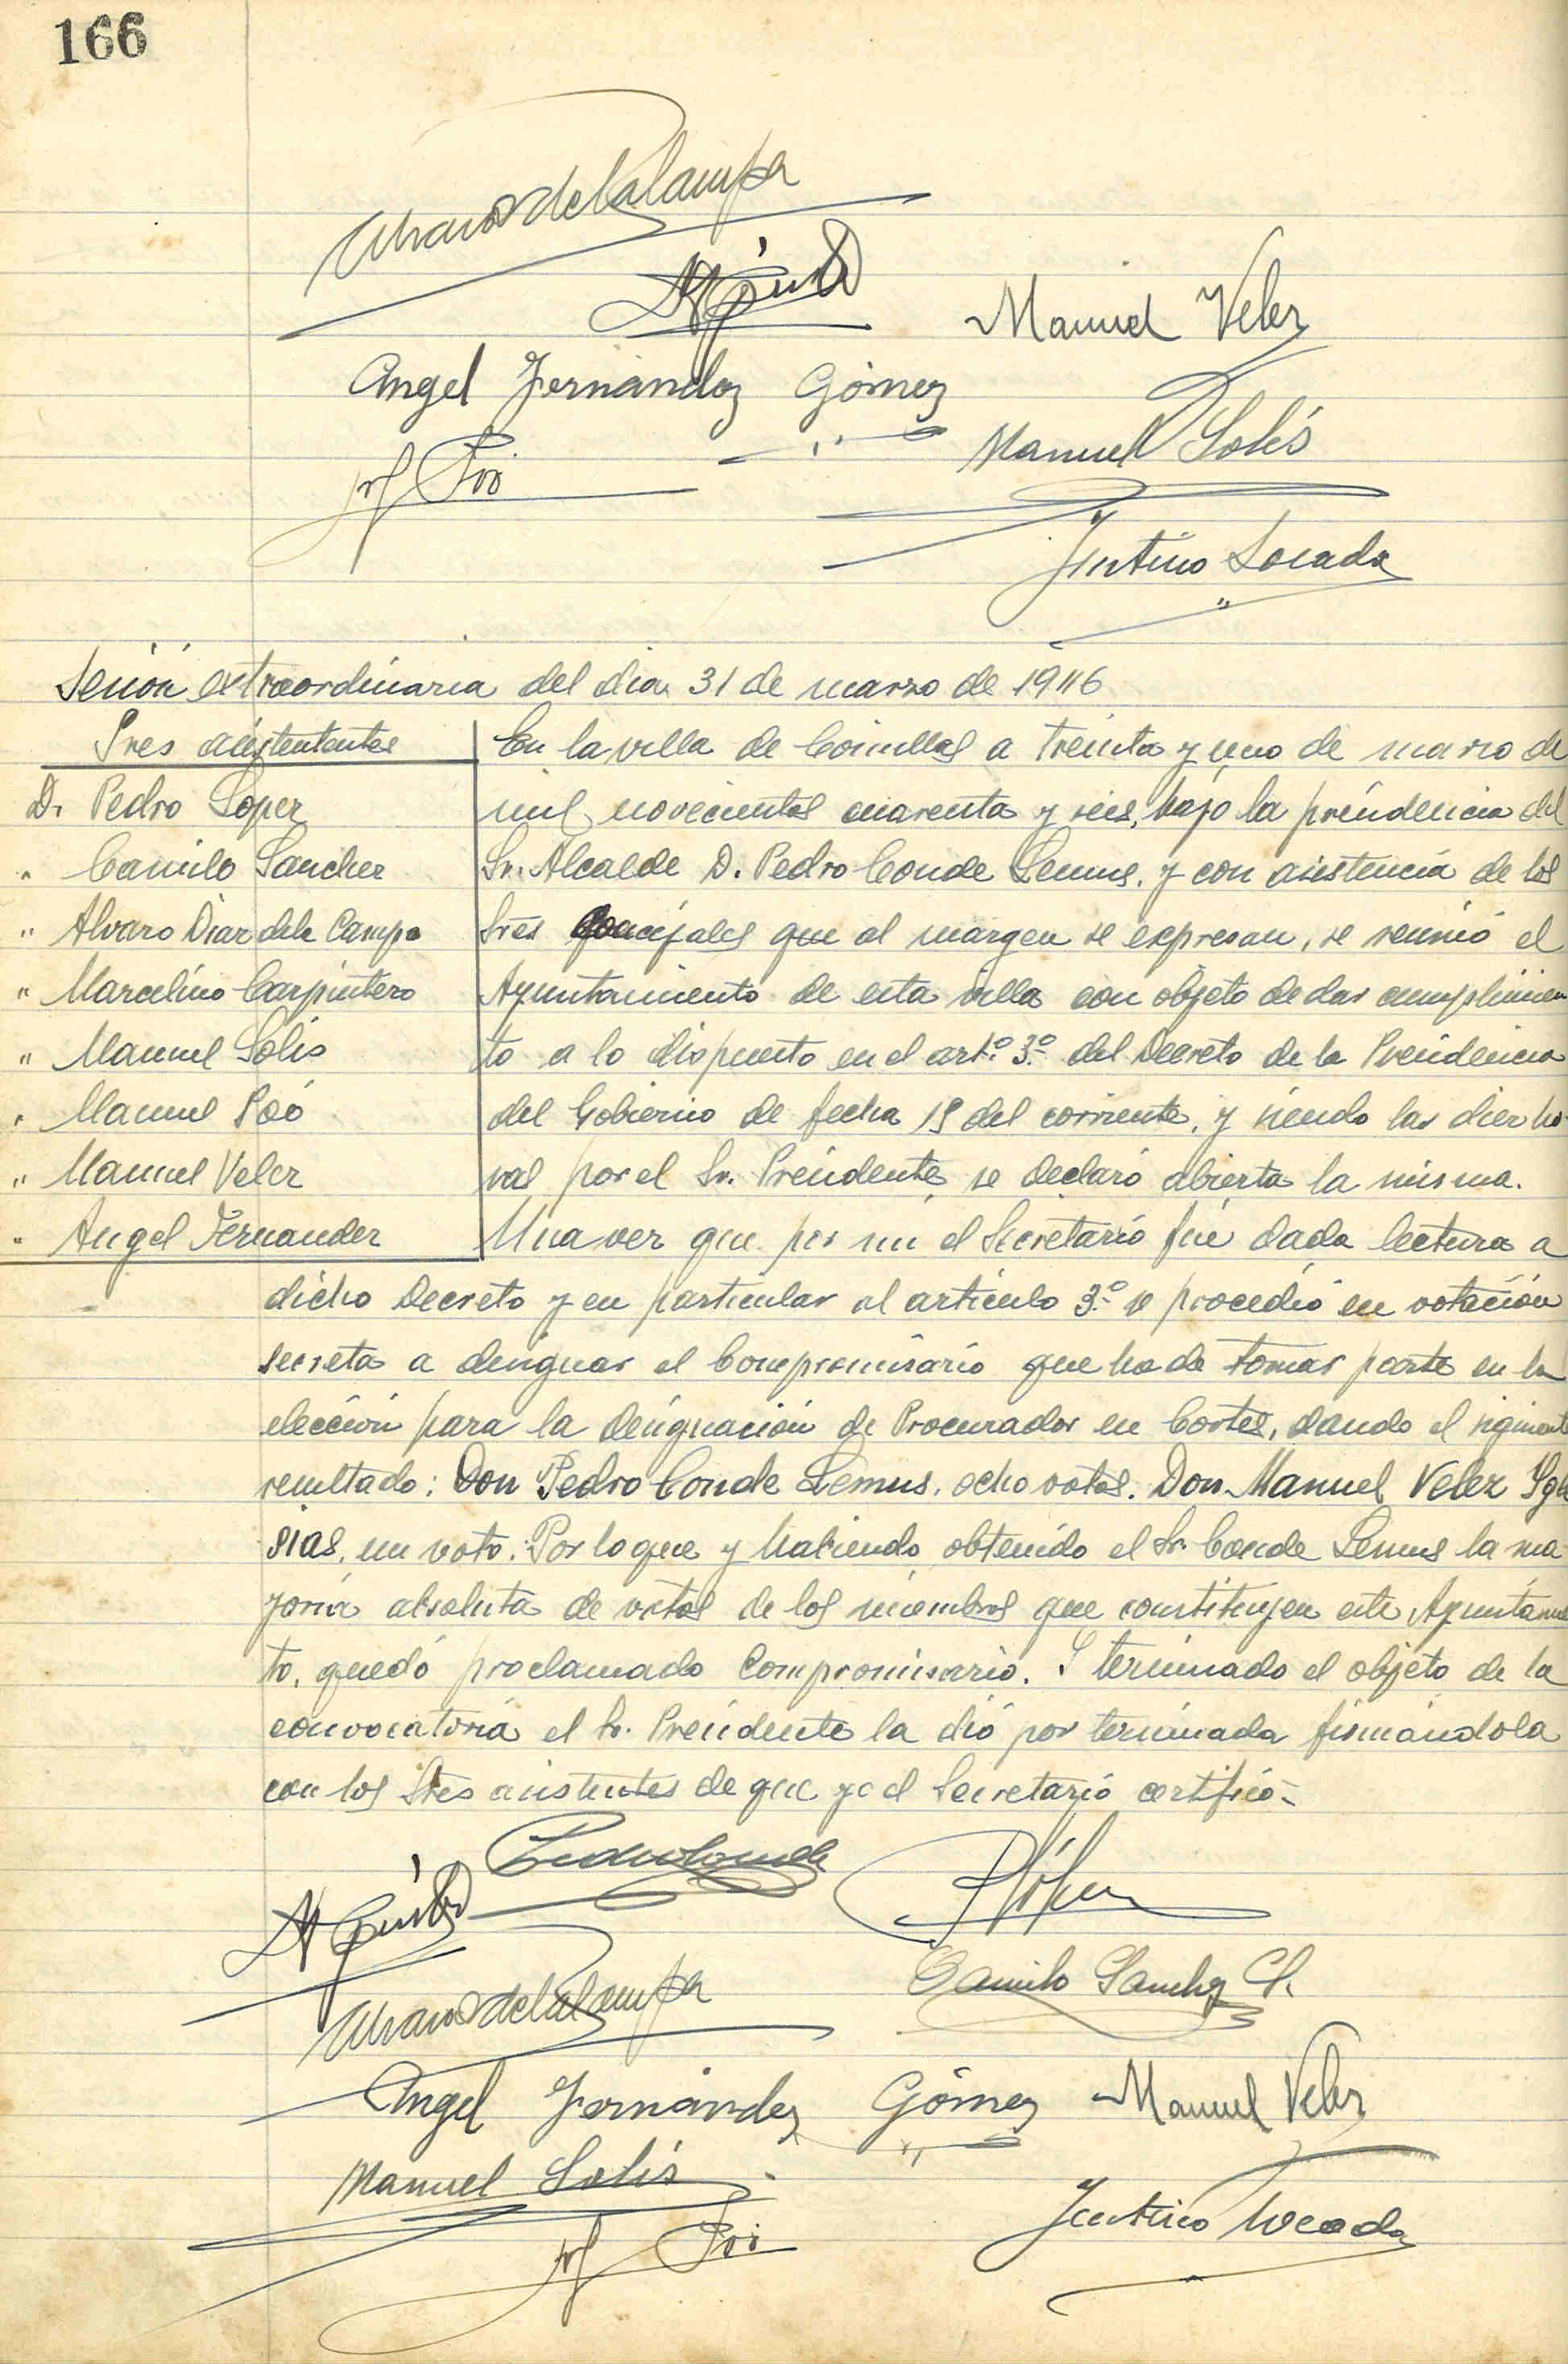 166
Alvaro D de la Campa
Manuel Velez
Angel Fernández Gómez
Manuel Solís
M Poó
Sesión extraordinaria del dia 31 de marzo de 1946
Sres asistententes
D. Pedro Lopez
" Camilo Sanchez
" Alvaro Diaz dela Campa
" Marcelino Carpintero
" Manuel Solis
" Manuel Poó
" Manuel Velez
" Angel Fernandez
En la villa de Comillas a treinta y uno de marzo de
mil novecientos cuarenta y seis, bajo la presidencia del
Sr. Alcalde D. Pedro Conde Lemus, y con asistencia de los
Sres Concejales que al margen se expresan, se reunió el
Ayuntamiento de esta villa con objeto de dar cumplimien
to a lo dispuesto en el artº 3º del Decreto de la Presidencia
del Gobierno de fecha 19 del corriente, y siendo las diez ho
ras por el Sr. Presidente se declaró abierta la misma.
Una vez que por mi el Secretario fué dada lectura a
dicho Decreto y en particular al artículo 3º se procedió en votación
secreta a designar el Compromisario que ha de tomar parte en la
elección para la designación de Procurador en Cortes, dando el siguiente
resultado: Don Pedro Conde Lemus, ocho votos. Don Manuel Velez Igle
sias, un voto. Por lo que y habiendo obtenido el Sr. Conde Lemus la ma
yoria absoluta de votos de los miembros que constituyen este Ayuntamien
to, quedó proclamado Compromisario. Y terminado el objeto de la
convocatoria el Sr. Presidente la dió por terminada firmándola
con los Sres asistentes de que yo el Secretario certifico-
Pedro Conde
P López
Camilo Sanchez
Alvaro D de la Campa
Angel Fernández Gómez Manuel Velez
Manuel Solís
M Poó